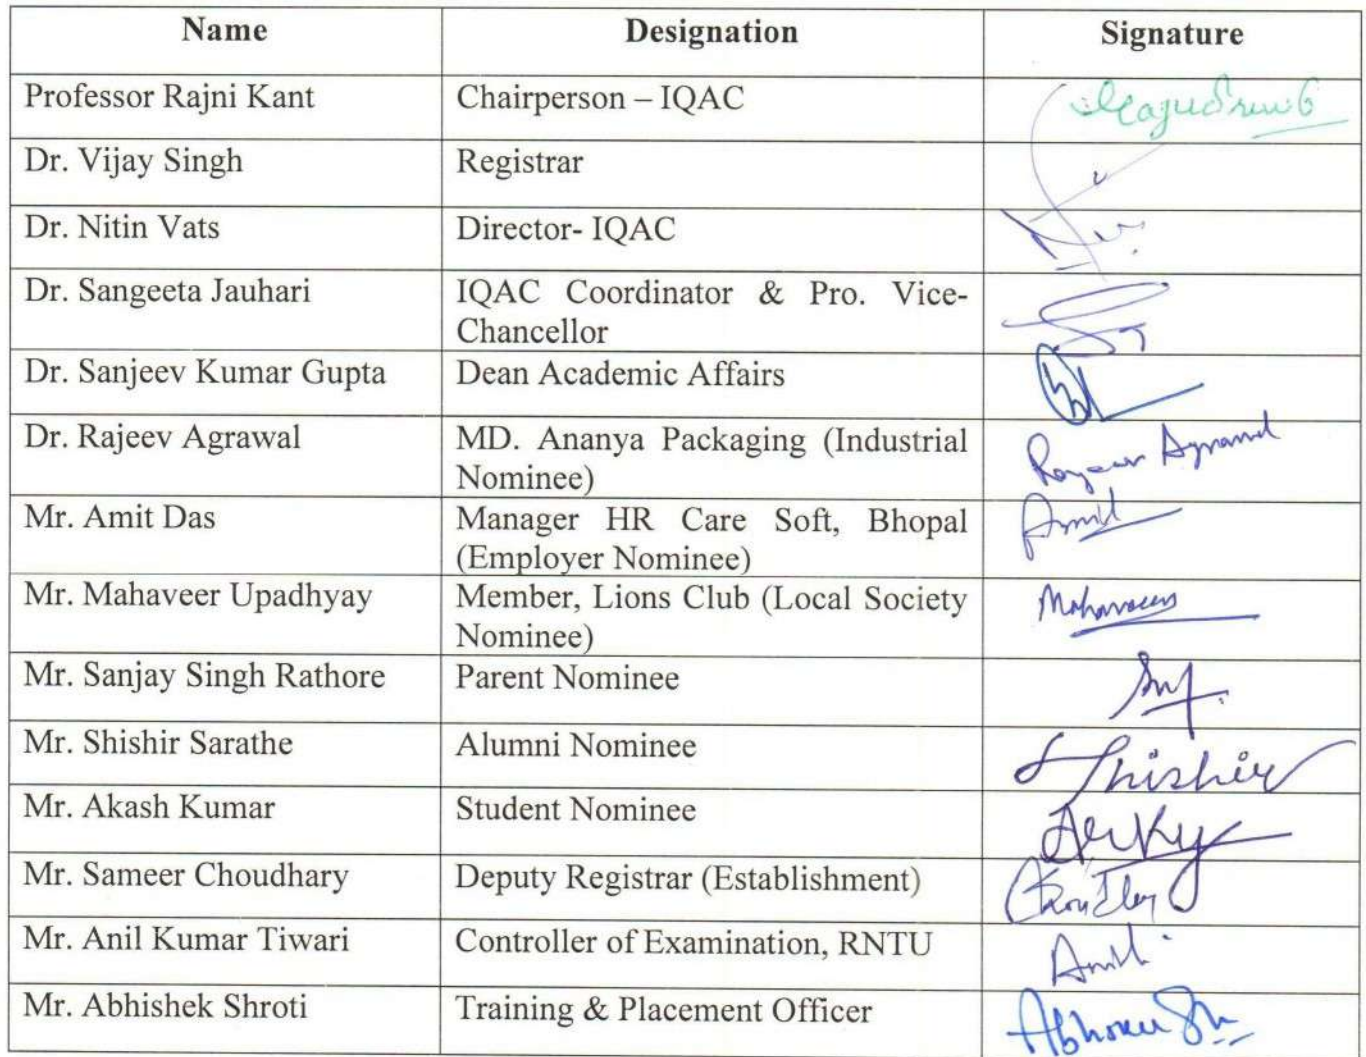 Name Designation Signature
Professor Rajni Kant Chairperson – IQAC
Dr. Vijay Singh Registrar
Dr. Nitin Vats Director- IQAC
Dr. Sangeeta Jauhari IQAC Coordinator & Pro. Vice-
Chancellor
Dr. Sanjeev Kumar Gupta Dean Academic Affairs
Dr. Rajeev Agrawal MD. Ananya Packaging (Industrial
Nominee)
Mr. Amit Das Manager HR Care Soft, Bhopal
(Employer Nominee)
Mr. Mahaveer Upadhyay Member, Lions Club (Local Society
Nominee)
Mr. Sanjay Singh Rathore Parent Nominee
Mr. Shishir Sarathe Alumni Nominee Shishir
Mr. Akash Kumar Student Nominee
Mr. Sameer Choudhary Deputy Registrar (Establishment)
Mr. Anil Kumar Tiwari Controller of Examination, RNTU
Mr. Abhishek Shroti Training & Placement Officer